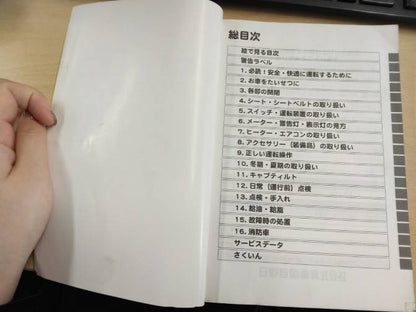 総目次
絵で見る目次
警告ラベル
1. 必読！安全・快適に運転するために
2. お車をたいせつに
3. 各部の開閉
4. シート・シートベルトの取り扱い
5. スイッチ・運転装置の取り扱い
6. メーター・警告灯・表示灯の見方
7. ヒーター・エアコンの取り扱い
8. アクセサリー（装備品）の取り扱い
9. 正しい運転操作
10. 冬期・夏期の取り扱い
11. キャブティルト
12. 日常（運行前）点検
13. 点検・手入れ
14. 給油・給脂
15. 故障時の処置
16. 消防車
サービスデータ
さくいん